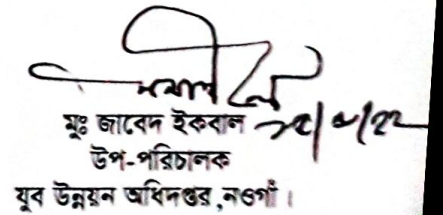 মুঃ জাবেদ ইকবাল
উপ-পরিচালক
যুব উন্নয়ন অধিদপ্তর ,নওগাঁ ।